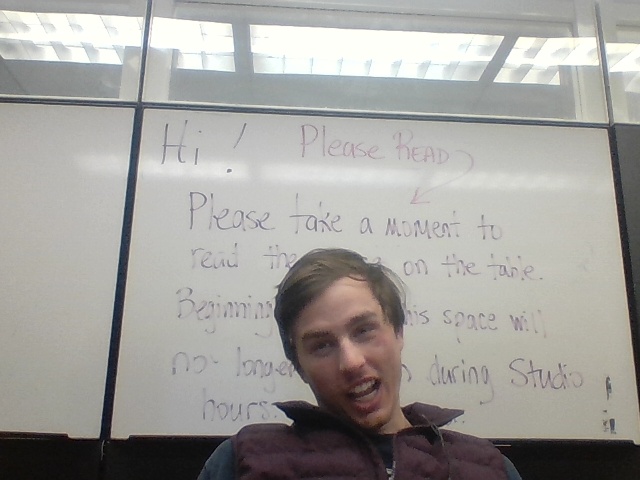 Hi! Please READ
Please take a moment to
read the on the table.
Beginning this space will
no longer during Studio
hours.